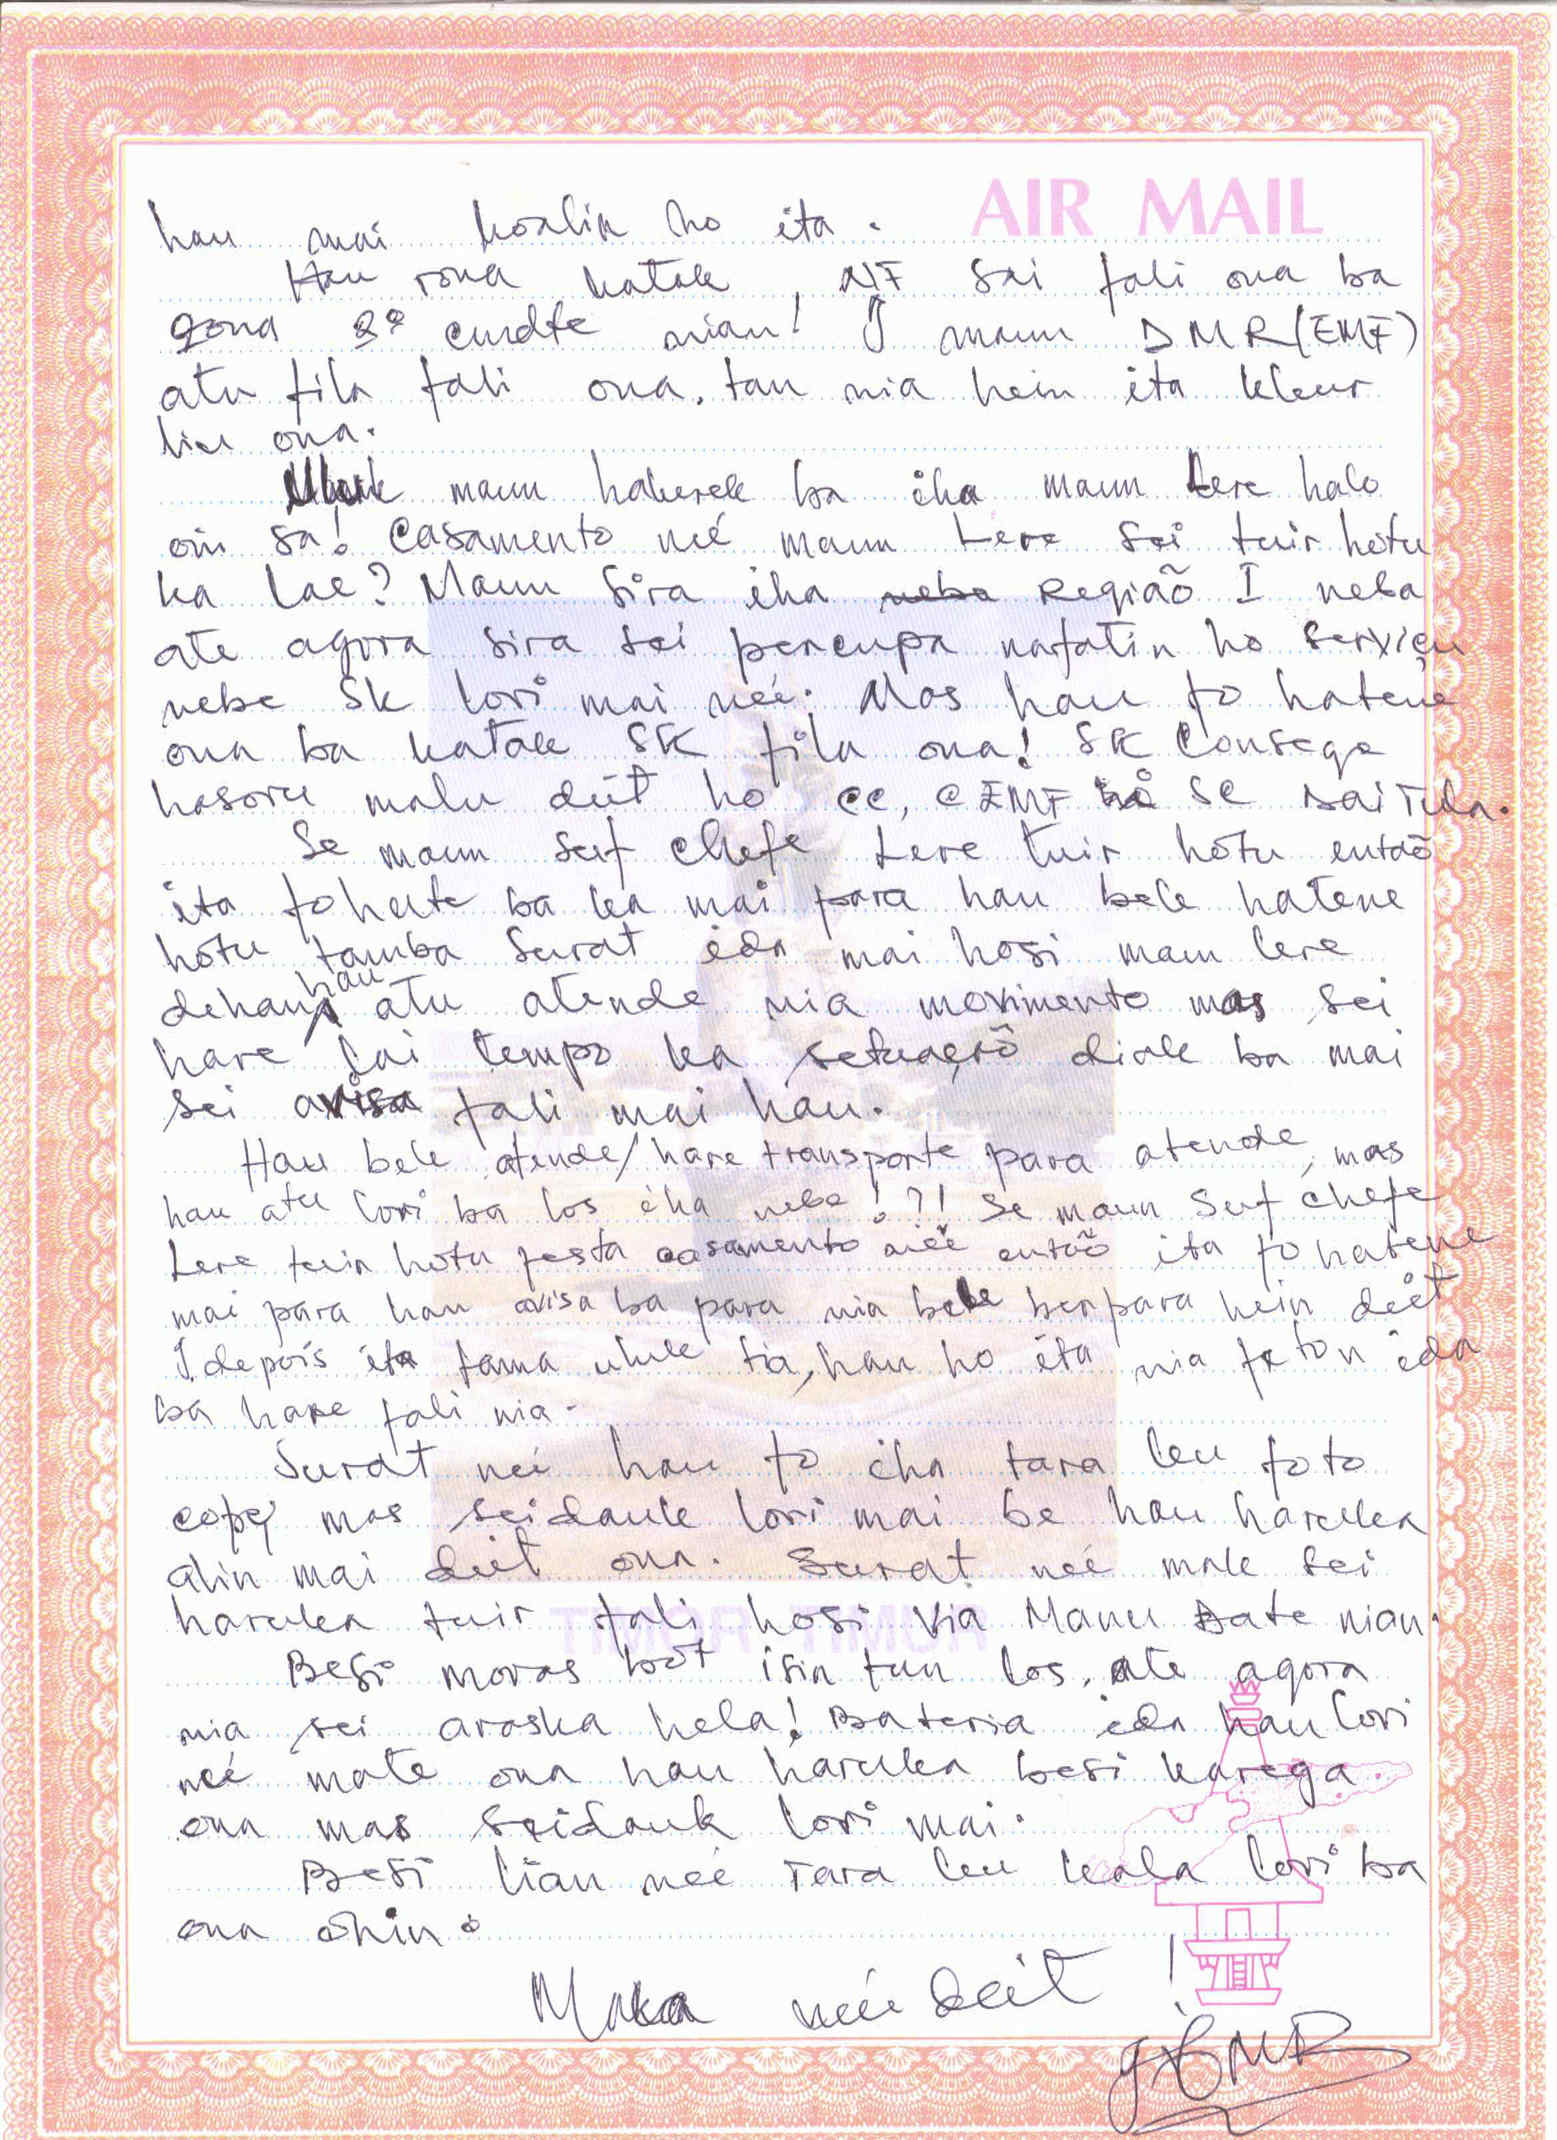 AIR MAIL
hau mai koalia ho ita.
Hau rona katak, NF sai fali ona ba
zona 2º nian! I maun DMR (EMF)
atu fila fali ona, tan nia hein ita kleur
liu ona.
maun hakerek ba iha maun Lere halo
oin sa! Casamento neé maun Lere sei tuir hotu
ka lae? Maun sira iha Região I neba
ate agora sira sei nafatin ho servicu
nebe SK lori mai neé. Mas hau fo hatene
ona ba katak SK fila ona! SK consege
hasoru malu deit ho CC, CEMF SC Dai Tula.
Se maun Chefe Lere tuir hotu entaõ
ita fo ba ka mai para hau bele hatene
hotu tamba Surat ida mai hosi maun Lere
dehan hau atu atende nia movimento mas sei
hare lai tempo ka diak ba mai
sei avisa fali mai hau.
Hau bele atende/hare transporte para atende, mas
hau atu lori ba los iha nebe!?! Se maun Chefe
Lere tuir hotu festa casamento neé entaõ ita fo hatene
mai para hau avisa ba para nia bele para hein deit
I depois ita tama uluk tia, hau ho ita nia feton ida
ba hare fali nia.
Surat neé hau fo iha tara leu foto
copy mas seidauk lori mai be hau haruka
alin mai deit ona. Surat neé mak sei
haruka tuir fali hosi via Manu Date nian.
Besi moras boòt isin tun los, ate agora
nia sei araska hela! Bateria ida hau lori
neé mate ona hau haruka besi karega
ona mas seidauk lori mai.
Besi lian neé Tara leu kala lori ba
ona ohin.
Maka neé deit!
TIMOR TIMUR